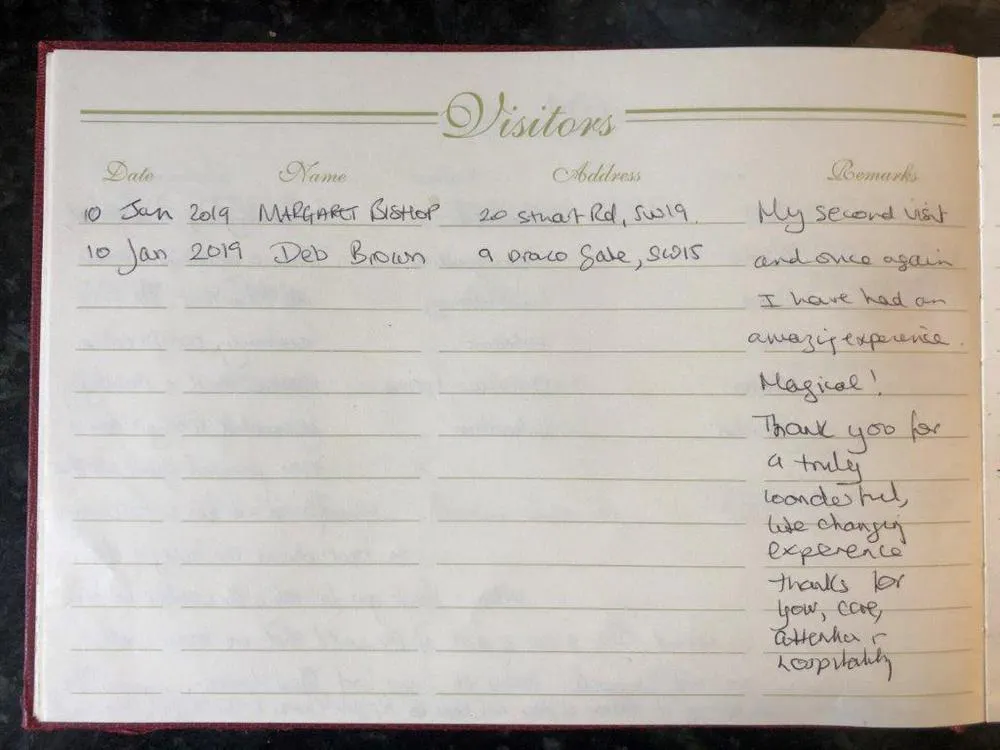 Visitors
Date Name Address Remarks
10 Jan 2019 MARGARET BISHOP 20 Stuart Rd, SW19. My second visit
10 Jan 2019 Deb Brown 9 Draco Gate, SW15 and once again
I have had an
amazing experience.
Magical!
Thank you for
a truly
wonderful,
life changing
experence
thanks for
your, care,
attention +
hospitality